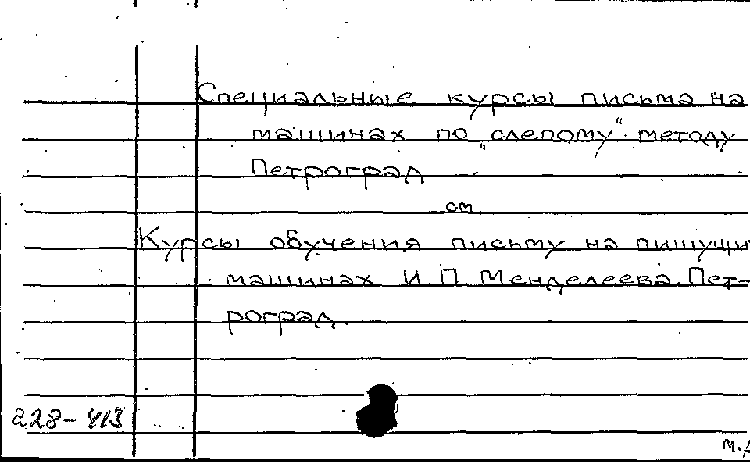 Специальные курсы письма на
машинах по „слепому“ методу
Петроград
см
Курсы обучения письму на пишущи
машинах И П Менделеева. Пет-
роград.
228-413